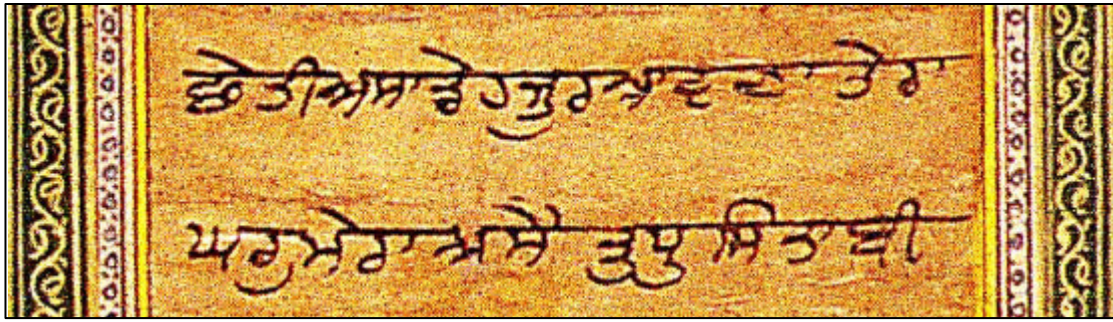 ਛੇਤੀ ਅਸਾਡੇ ਹਜੁਰ ਆਵਣਾ ਤੇਰਾ
ਘਰੁ ਮੇਰਾ ਅਸੈ ਤੁਧੁ ਸਿਤਾਬੀ